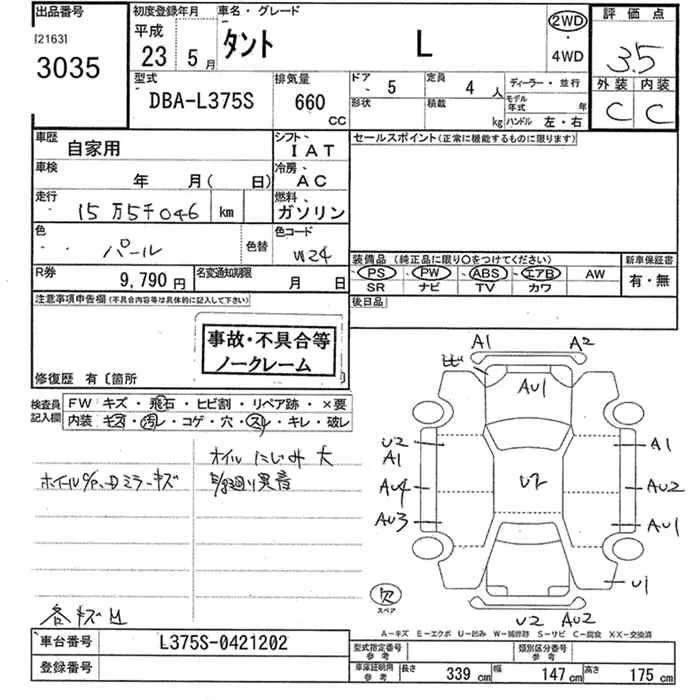 出品番号
[2163]
3035
初度登録年月
平成
23 5月
車名・グレード
タント L
2WD
・
4WD
評価点
3.5
外装 内装
C C
型式
DBA-L375S
排気量
660
CC
ドア・ 5
定員 4 人
ディーラー・並行
形状
積載 kg
モデル年式 年
ハンドル 左・右
車歴
自家用
シフト
IAT
セールスポイント(正常に機能するものに限ります)
車検
年 月( 日)
冷房
AC
走行
15万5千046 km
燃料
ガソリン
色
パール
色替
色コード
W24
装備品 (純正品に限り○をつけてください)
新車保証書
PS ・ PW ・ ABS ・ エアB ・ AW
SR ナビ TV カワ
有・無
R券
9,790 円
名変通知期限
月 日
後日品
注意事項申告欄(不具合内容等は具体的に記入して下さい)
事故・不具合等
ノークレーム
修復歴 有〔箇所
検査員
記入欄
FW キズ・飛石・ヒビ割・リペア跡・×要
内装 キズ・汚レ・コゲ・穴・スレ・キレ・破レ
オイルにじみ大
ホイールキズ
異音
各キズ凹
A1 A2
ヒビ
AU1
U2
A1
A1
AU4
U2
AU2
AU3
AU1
U1
欠
スペア
U2 AU2
A-キズ E-エクボ U-凹み W-補修跡 S-サビ C-腐食 XX-交換済
車台番号
L375S-0421202
登録番号
型式指定番号
参考
類別区分番号
参考
車庫証明用
参考
長さ 339 cm
幅 147 cm
高さ 175 cm